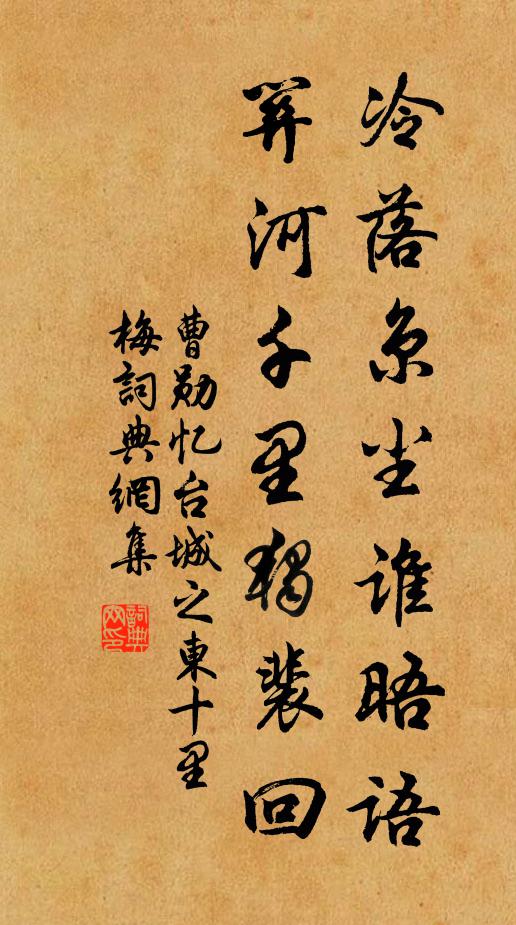 冷落京尘谁晤语
关河千里独裴回
曹勛忆台城之東十里
梅詞典網集
詞典
网印